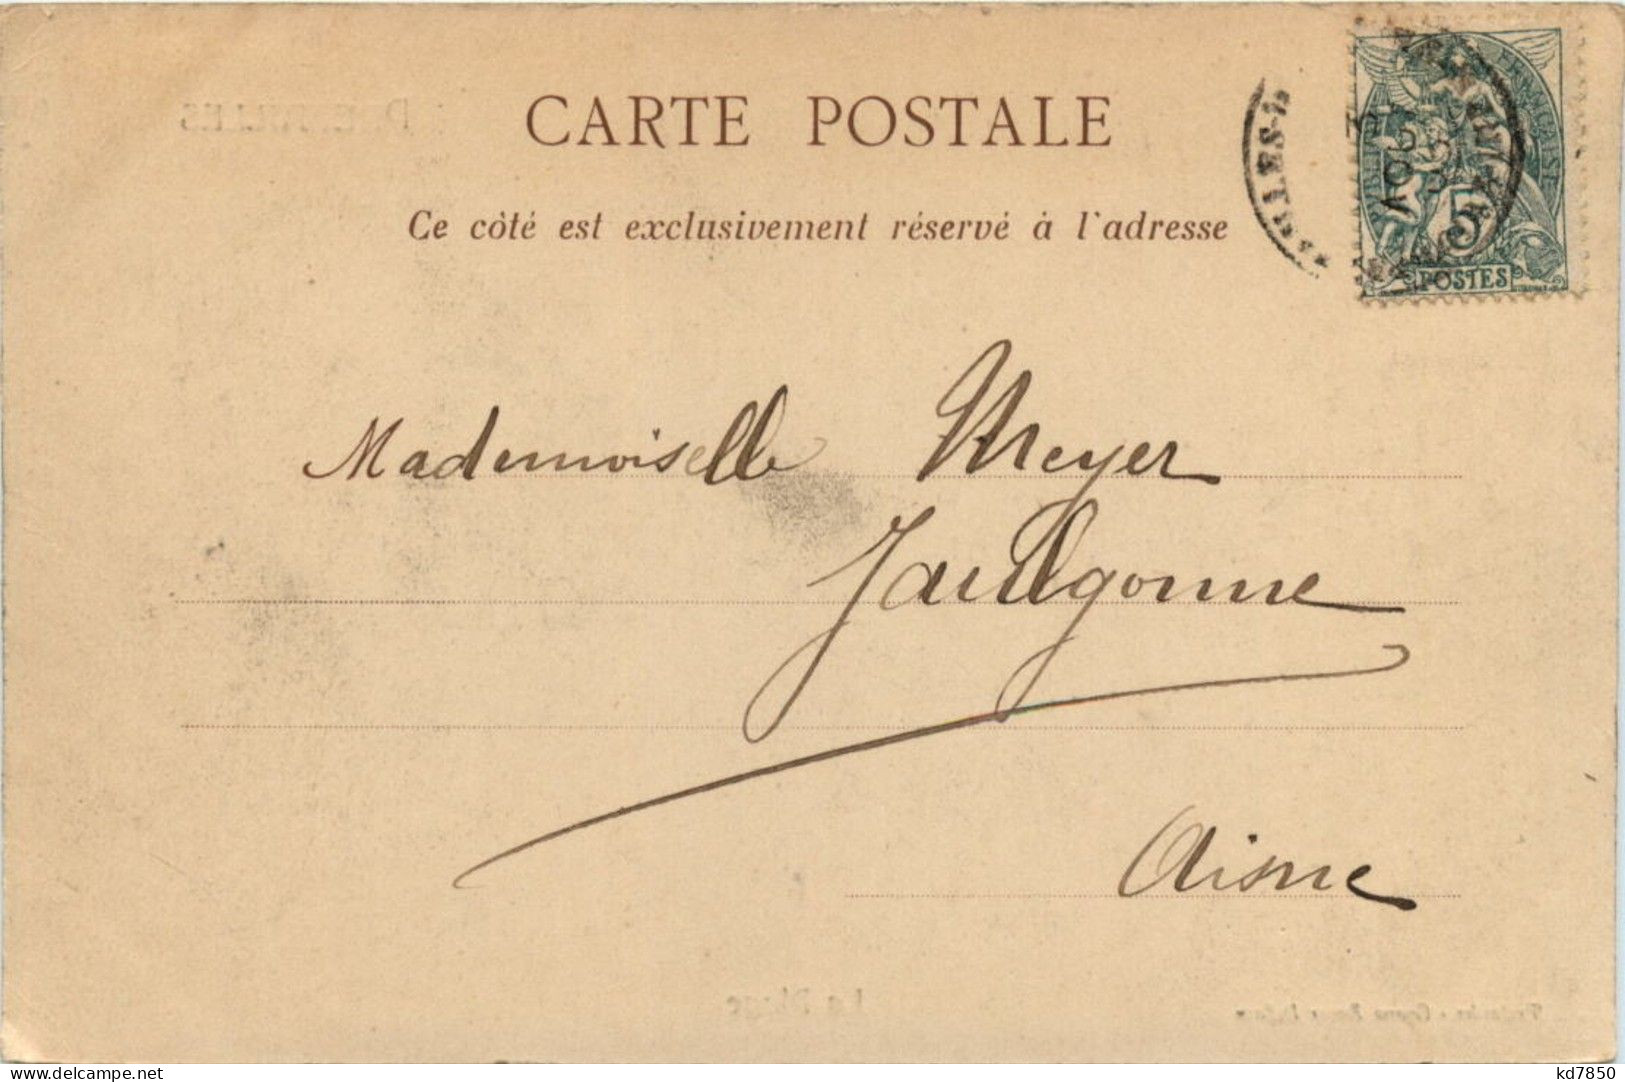 CARTE POSTALE
Ce côté est exclusivement réservé à l'adresse
FRANÇAISE
5
POSTES
AOUT
Mademoiselle Meyer
Jaulgonne
Aisne
La Plage
www.delcampe.net
kd7850